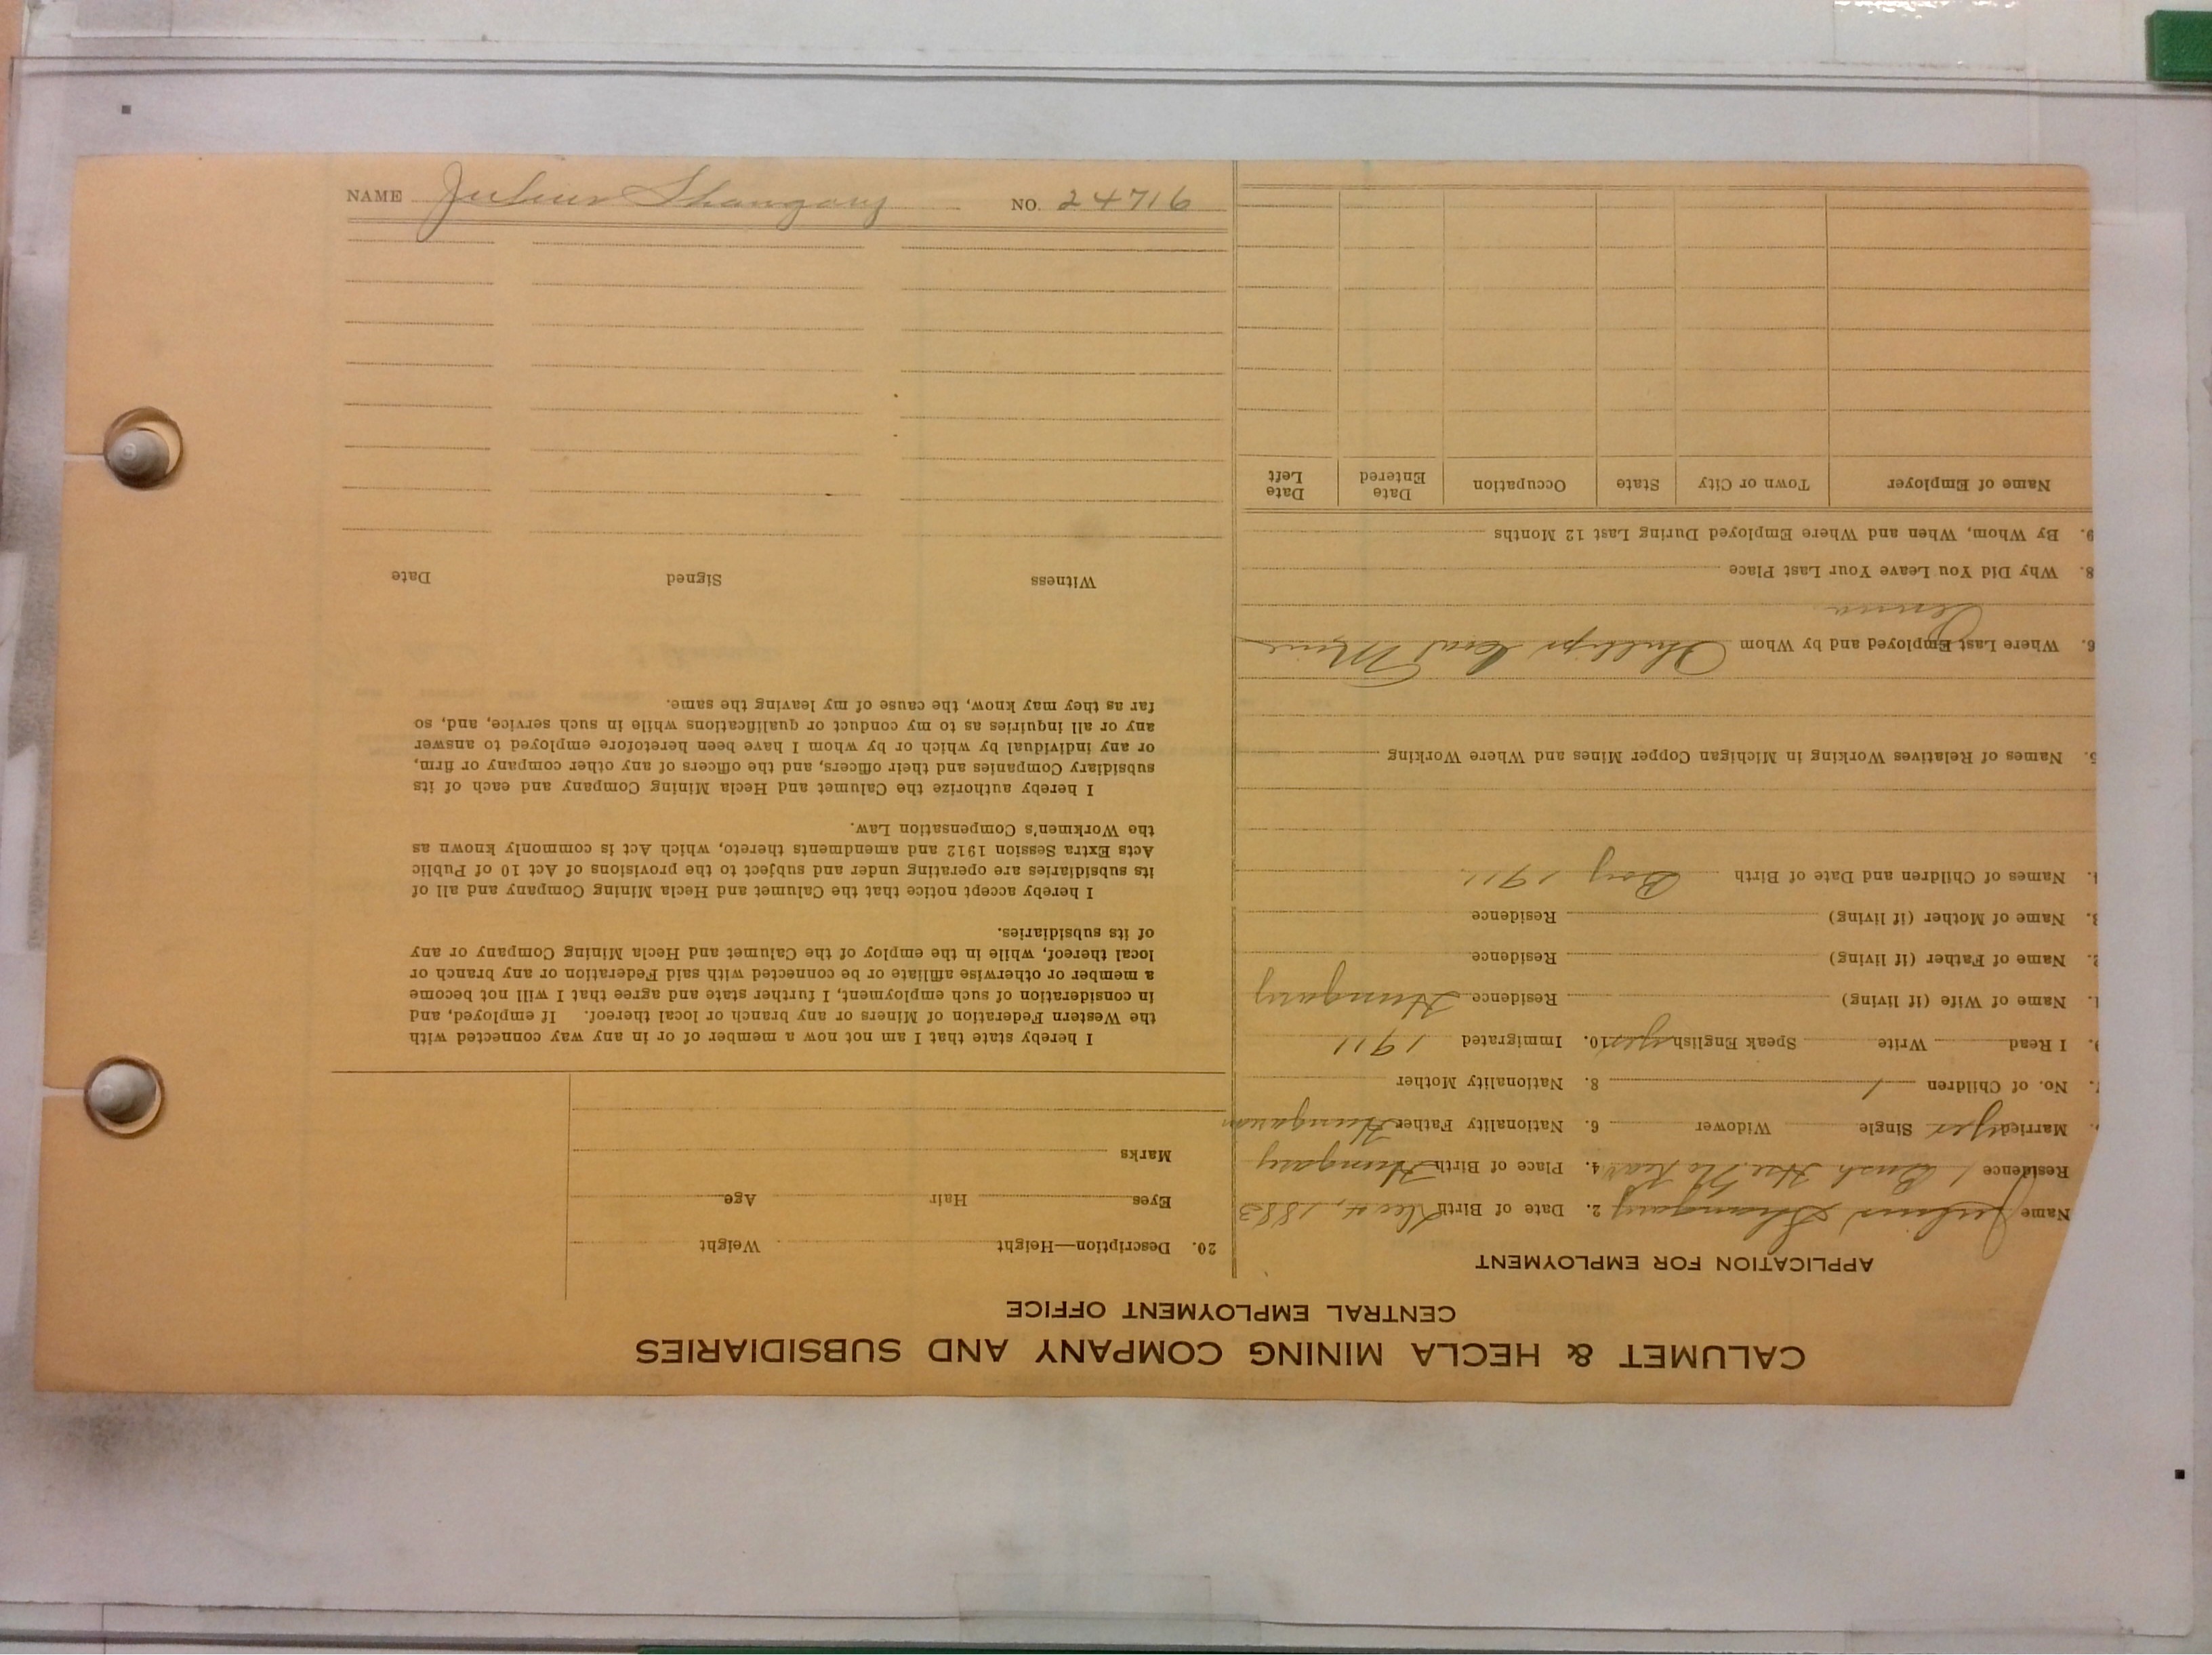 CALUMET & HECLA MINING COMPANY AND SUBSIDIARIES
CENTRAL EMPLOYMENT OFFICE
APPLICATION FOR EMPLOYMENT
Name Julius Shangary 2. Date of Birth Dec 4, 1883
Residence 1 Bush Hse. No Kear 4. Place of Birth Hungary
Married yes Single Widower 6. Nationality Father Hungarian
No. of Children 1 8. Nationality Mother
I Read Write Speak English yes 10. Immigrated 1911
1. Name of Wife (if living) Residence Hungary
2. Name of Father (if living) Residence
3. Name of Mother (if living) Residence
4. Names of Children and Date of Birth Boy 1911
5. Names of Relatives Working in Michigan Copper Mines and Where Working
6. Where Last Employed and by Whom Phillips Coal Mine
Penna
8. Why Did You Leave Your Last Place
9. By Whom, When and Where Employed During Last 12 Months
Name of Employer Town or City State Occupation Date Entered Date Left
20. Description—Height Weight
Eyes Hair Age
Marks
I hereby state that I am not now a member of or in any way connected with
the Western Federation of Miners or any branch or local thereof. If employed, and
in consideration of such employment, I further state and agree that I will not become
a member or otherwise affiliate or be connected with said Federation or any branch or
local thereof, while in the employ of the Calumet and Hecla Mining Company or any
of its subsidiaries.
I hereby accept notice that the Calumet and Hecla Mining Company and all of
its subsidiaries are operating under and subject to the provisions of Act 10 of Public
Acts Extra Session 1912 and amendments thereto, which Act is commonly known as
the Workmen's Compensation Law.
I hereby authorize the Calumet and Hecla Mining Company and each of its
subsidiary Companies and their officers, and the officers of any other company or firm,
or any individual by which or by whom I have been heretofore employed to answer
any or all inquiries as to my conduct or qualifications while in such service, and, so
far as they may know, the cause of my leaving the same.
Witness Signed Date
NAME Julius Shangary NO. 24716